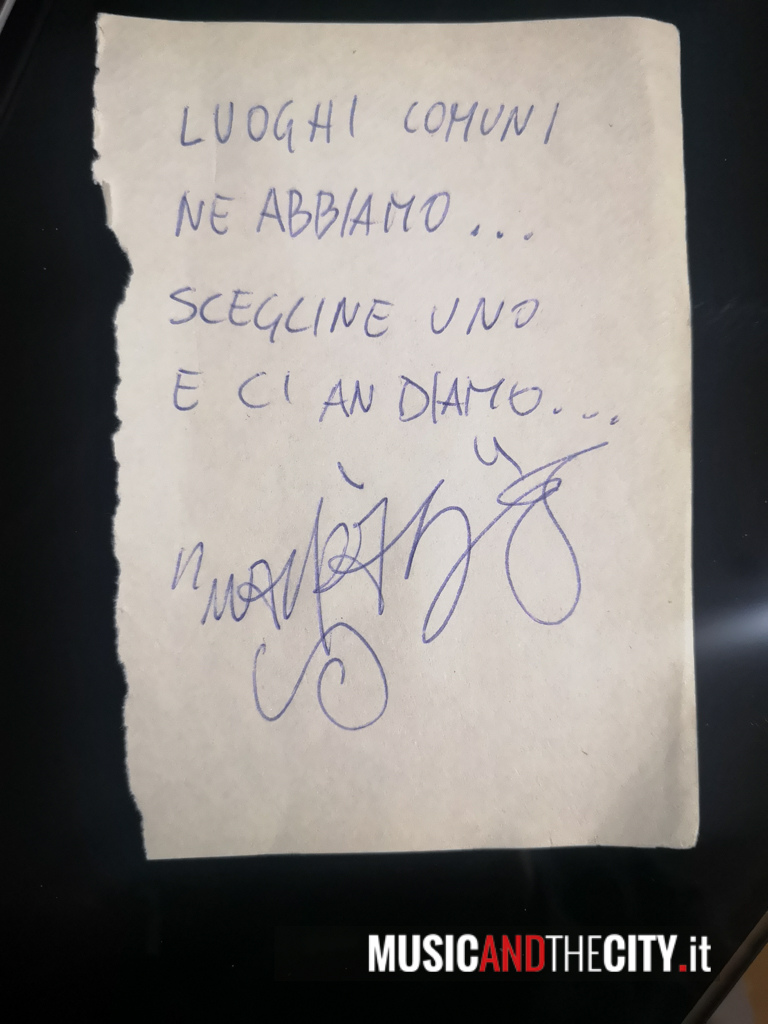 LUOGHI COMUNI
NE ABBIAMO...
SCEGLINE UNO
E CI ANDIAMO...
MUSICANDTHECITY.it